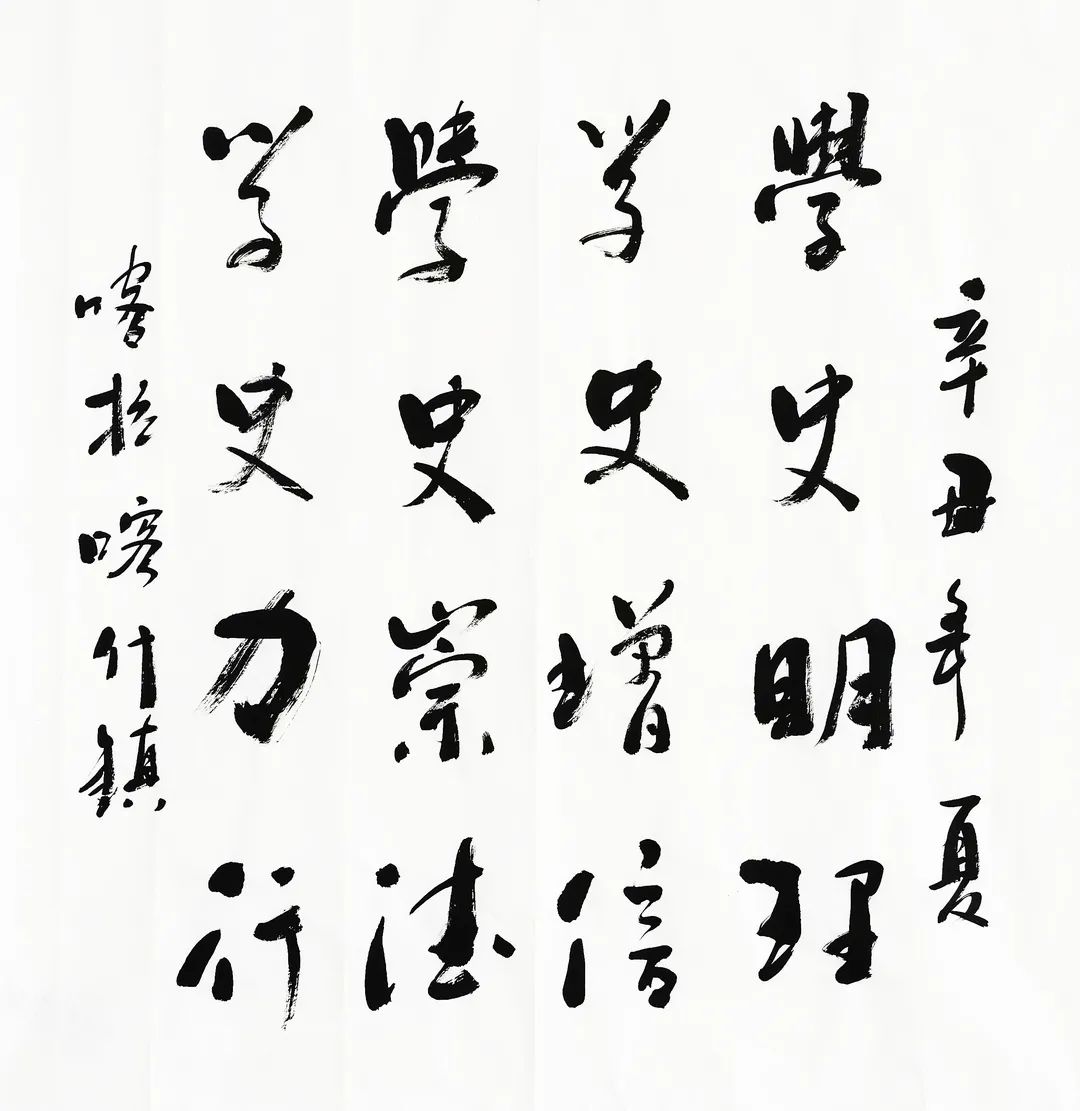 辛丑年夏
學史明理
学史增信
學史崇德
学史力行
喀拉喀什鎮